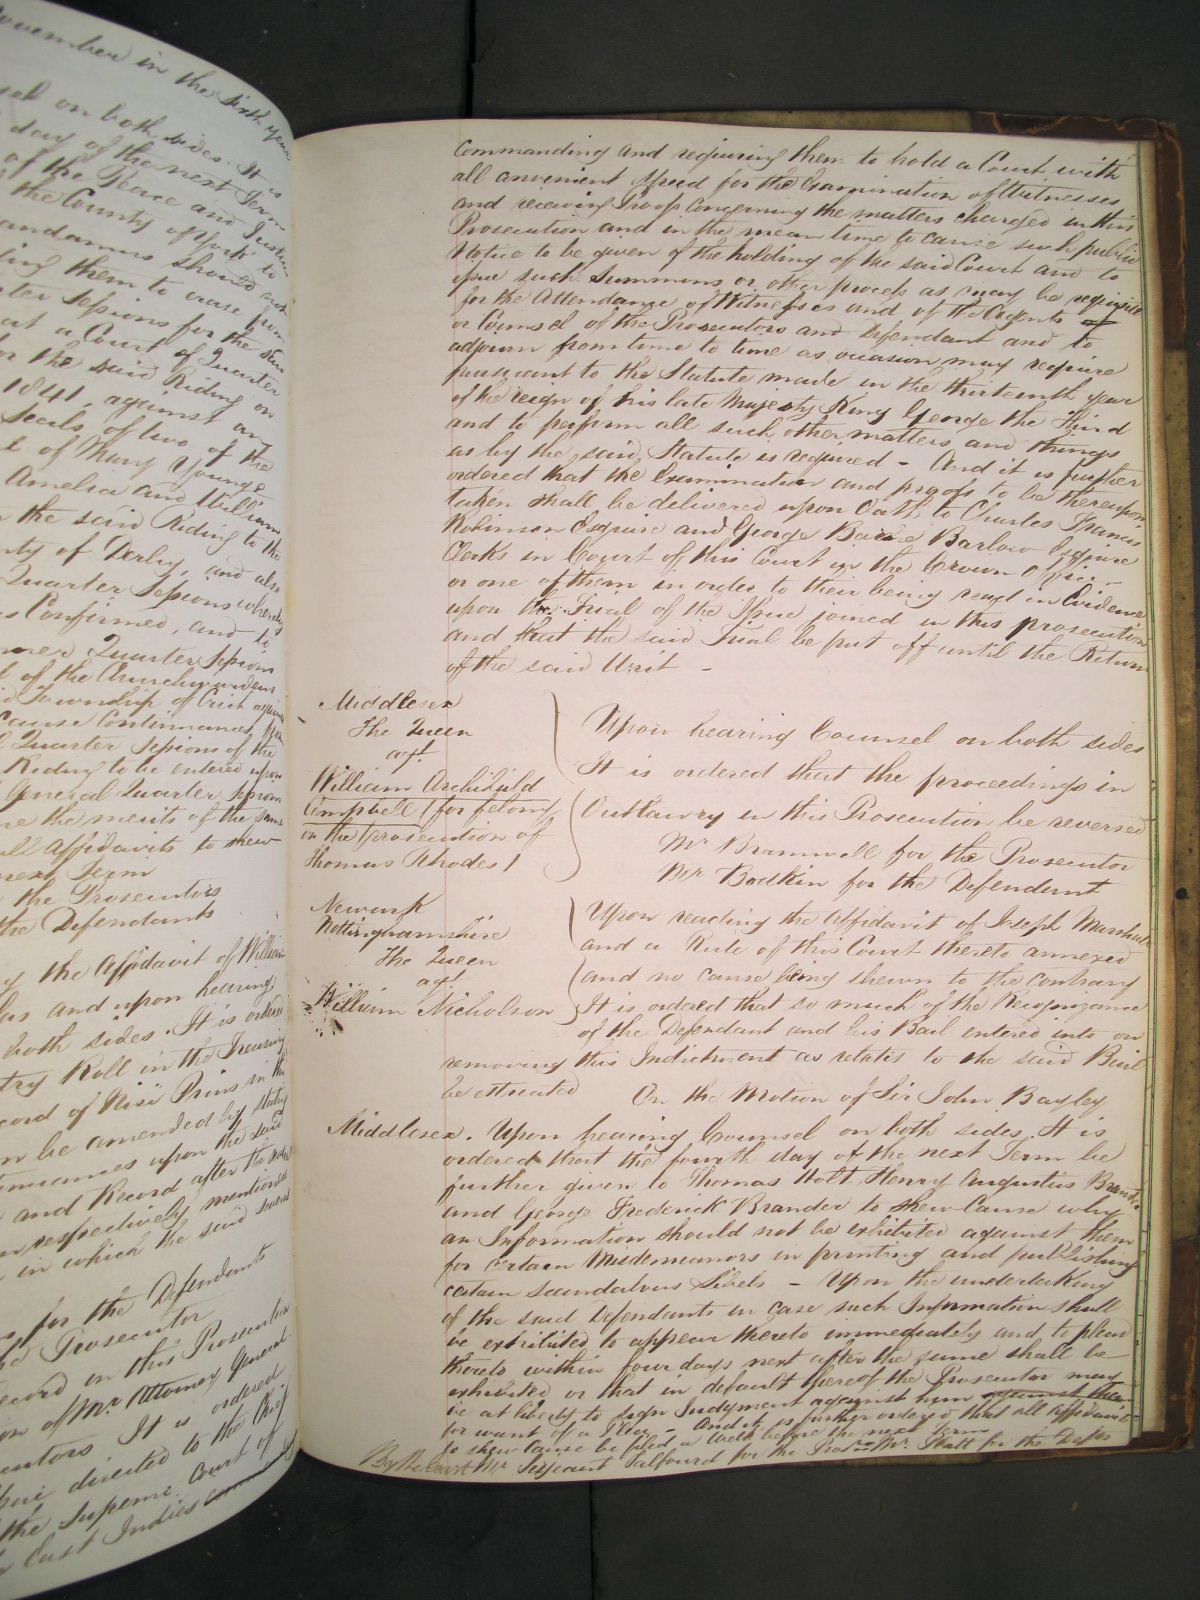 November in the Sixth year
sel on both sides. It is
day of the next Term
of the Peace and Justices
the County of York to
andamus should not
ing them to erase from
ter Sessions for the said
at a Court of Quarter
or the said Riding on
1841, against an
Seals of two of the
t of Mary Younge
Amelia and William
the said Riding to the
nty of Derby, and also
Quarter Sessions whereby
as Confirmed, and to
Quarter Sessions
of the Churchwardens
Township of Crich
Cause Continuances
Quarter Sessions of the
Riding to be entered upon
General Quarter Sessions
the merits of the same
all Affidavits to shew
next Term
the Prosecutors
the Defendants
the Affidavit of William
las and upon hearing
both sides. It is ordered
try Roll in the Treasury
cord of Nisi Prius in the
n be amended by stating
upon the said
and Record after the
respectively mentioned
in which the said
for the Defendants
Prosecutor
ecord in this Prosecution
on of Mr Attorney General
ecutors It is ordered
directed to the Chief
the Supreme Court of
East Indies
Commanding and requiring them to hold a Court with
all convenient Speed for the Examination of Witnesses
and receiving Proofs concerning the matters charged in this
Prosecution and in the mean time to cause such public
Notice to be given of the holding of the said Court and to
issue such Summons or other process as may be requisite
for the Attendance of Witnesses and of the Agents or
or Counsel of the Prosecutors and Defendant and to
adjourn from time to time as occasion may require
pursuant to the Statute made in the thirteenth year
of the reign of his late Majesty King George the Third
and to perform all such other matters and things
as by the said Statute is required - And it is further
ordered that the Examination and proofs to be thereupon
taken shall be delivered upon Oath to Charles Francis
Robinson Esquire and George Barnes Barlow Esquire
Clerks in Court of this Court in the Crown Office
or one of them in order to their being read in Evidence
upon the Trial of the Issue joined in this prosecution
and that the said Trial be put off until the Return
of the said Writ -
Middlesex
The Queen
agt.
William Archibald
Campbell (for felony
on the prosecution of
Thomas Rhodes)
Upon hearing Counsel on both sides
It is ordered that the proceedings in
Outlawry in this Prosecution be reversed
Mr Bramwell for the Prosecutor
Mr Bodkin for the Defendant
Newark
Nottinghamshire
The Queen
agt
William Nicholson
Upon reading the Affidavit of Joseph Marshall
and a Rule of this Court thereto annexed
and no cause being shewn to the contrary
It is ordered that so much of the Recognizance
of the Defendant and his Bail entered into on
removing this Indictment as relates to the said Bail
be estreated On the Motion of Sir John Bayley
Middlesex. Upon hearing Counsel on both sides. It is
ordered that the fourth day of the next Term be
further given to Thomas Holt, Henry Augustus Brander
and George Frederick Brander to shew Cause why
an Information should not be exhibited against them
for certain Misdemeanors in printing and publishing
certain scandalous Libels - Upon the undertaking
of the said Defendants in case such Information shall
be exhibited to appear thereto immediately and to plead
thereto within four days next after the same shall be
exhibited or that in default thereof the Prosecutor may
be at liberty to sign Judgment against him against them
for want of a Plea - And it is further ordered that all Affidavits
to shew cause be filed a Week before the next Term
By the Court Mr Serjeant Talfourd for the Prosr Mr. Platt for the Defts